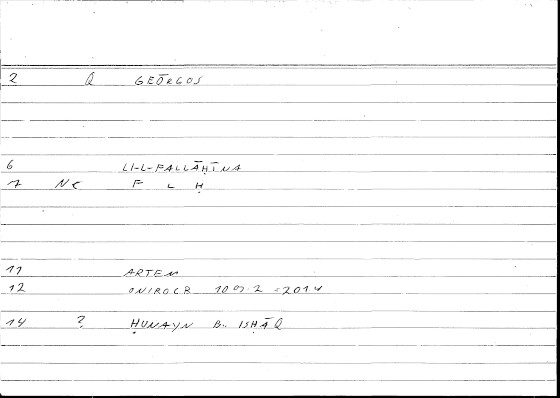 2 Q GEŌRGOS
6 LI-L-FALLĀḤĪNA
7 NC F L Ḥ
11 ARTEM
12 ONIROCR 109.2 = 201 4
14 ? ḤUNAYN B. ISḤĀQ